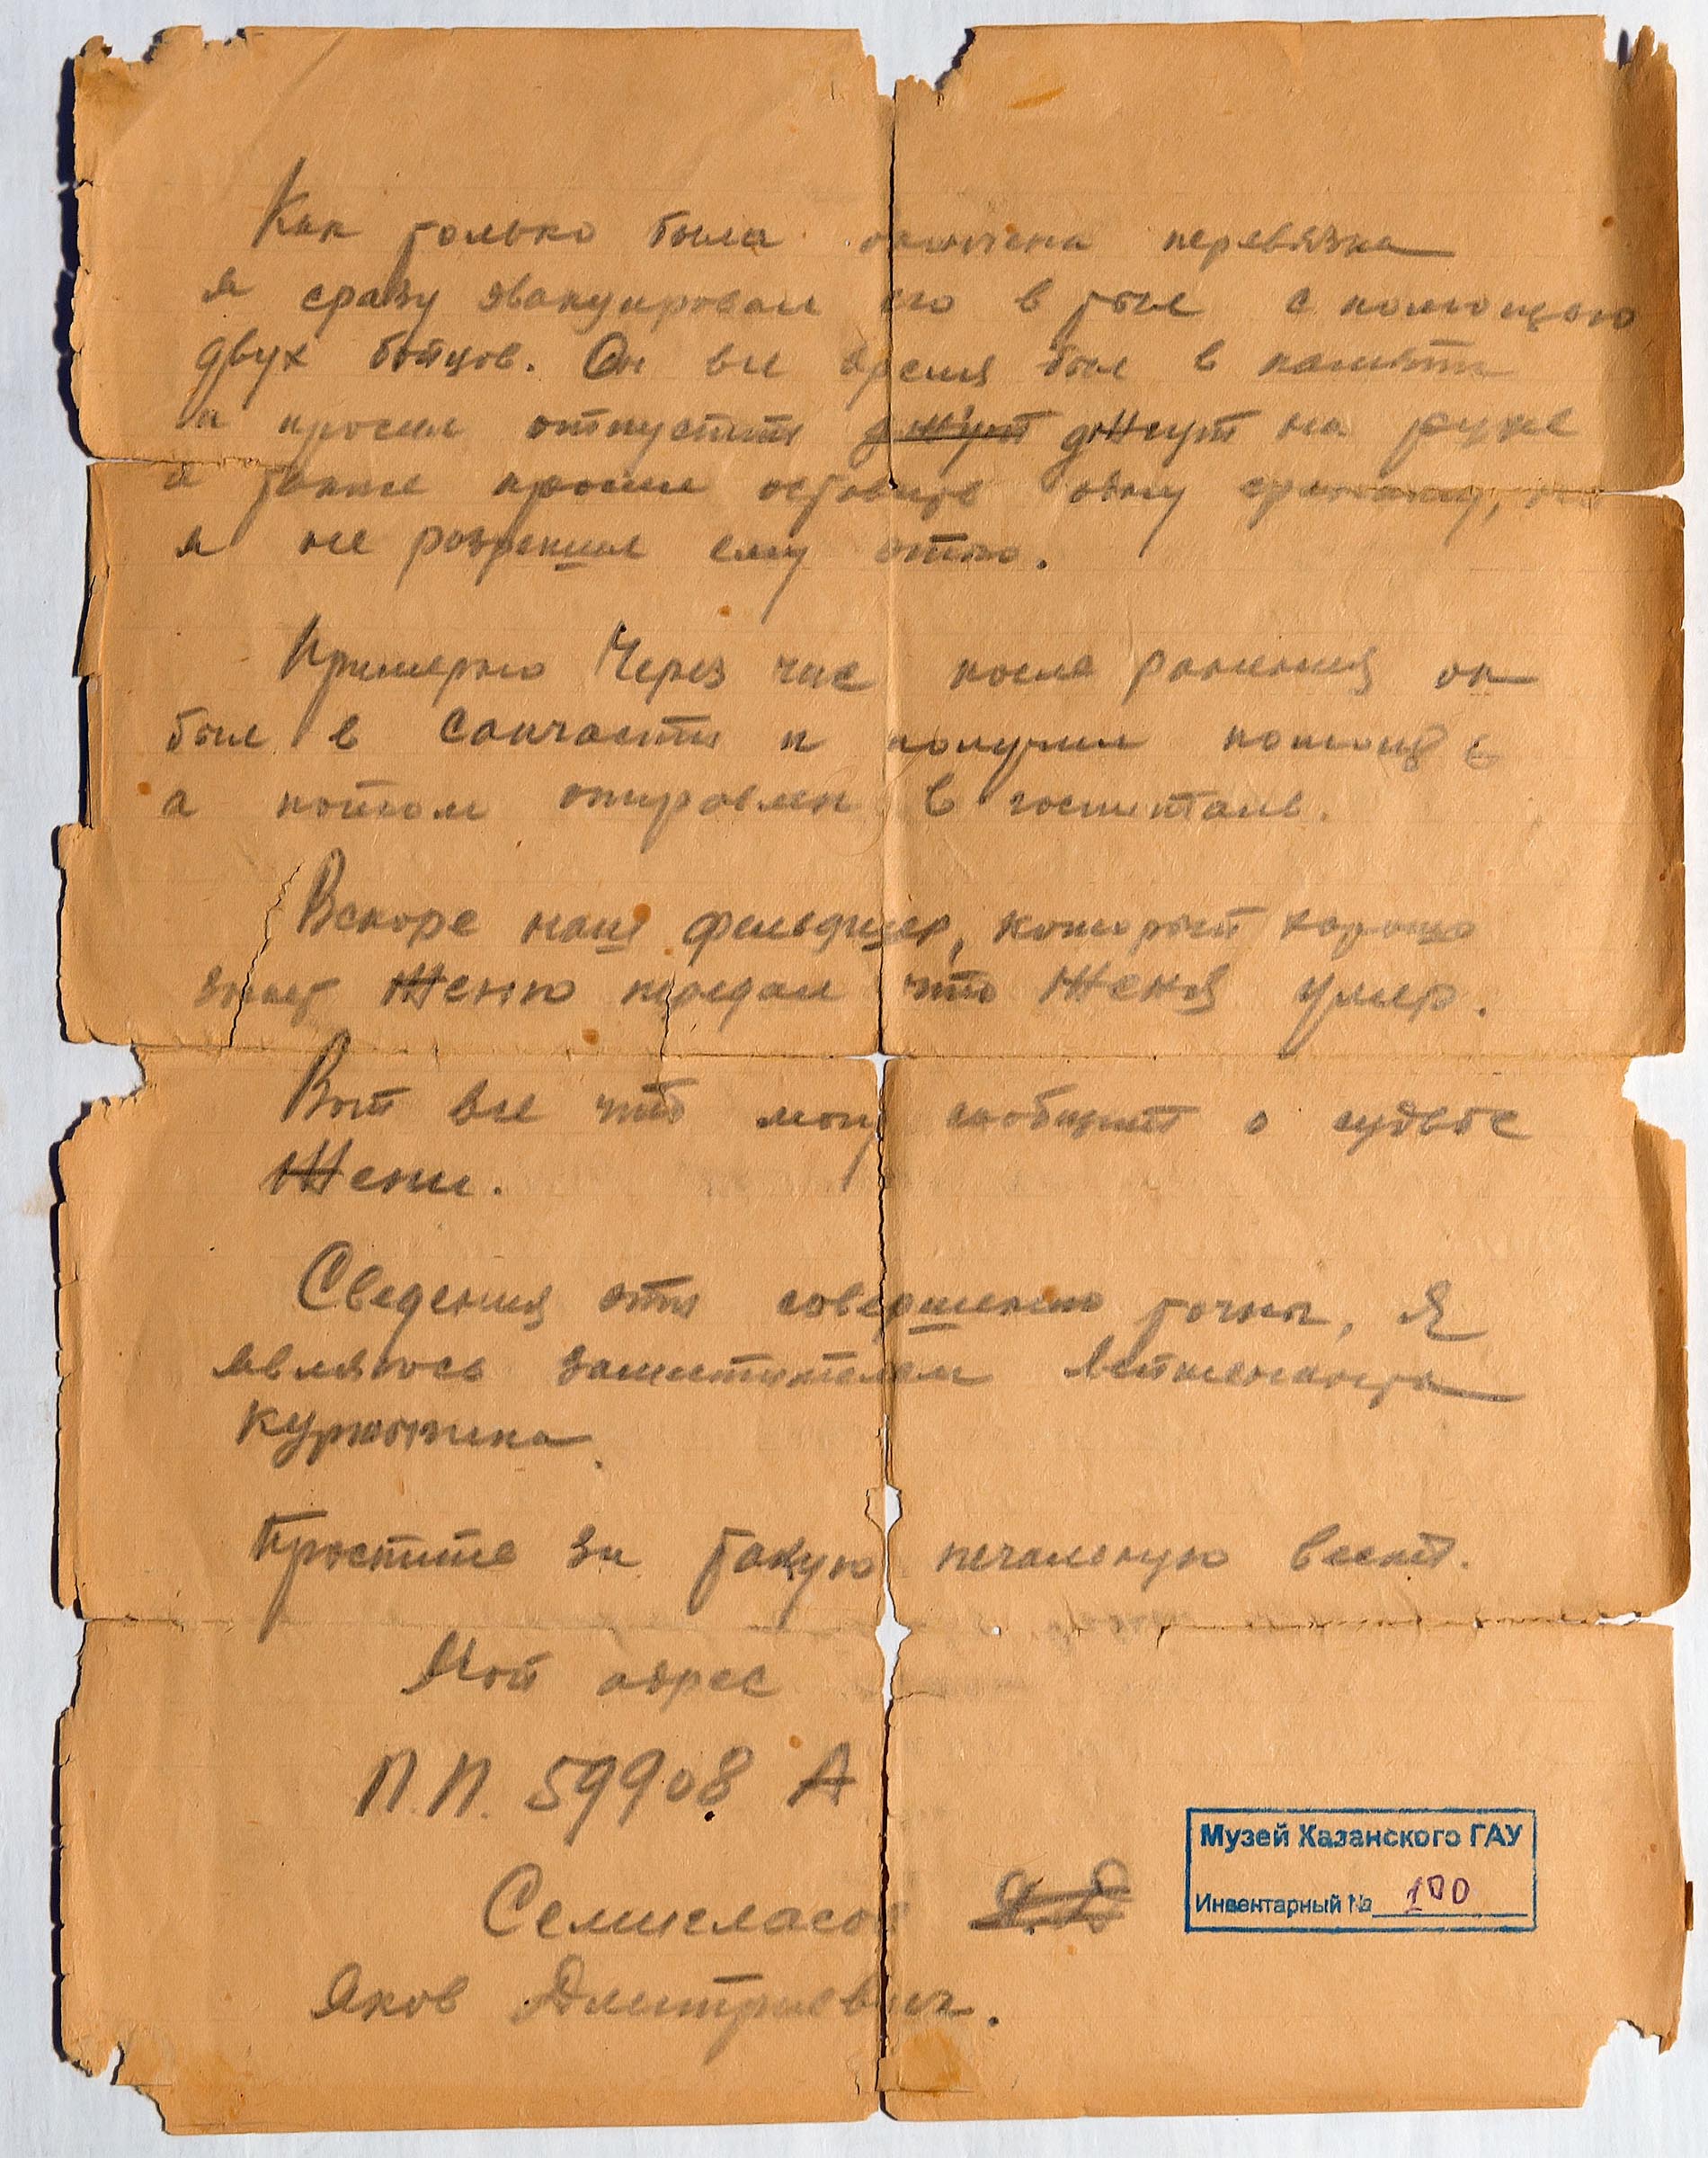 Как только была окончена перевязка
я сразу эвакуировал его в тыл с помощью
двух бойцов. Он все время был в памяти
и просил отпустить джгут джгут на руке
а также просил оставить одну гранату, но
я не разрешил ему этого.
Примерно Через час после ранения он
был в Санчасти и получил помощь
а потом отправлен в госпиталь.
Вскоре наш фельдшер, который хорошо
знает Женю передал что Женя умер.
Вот все что могу сообщить о судьбе
Жени.
Сведения эти совершенно точны, Я
являюсь заместителем лейтенанта
Мой адрес
П.П. 59908 А
Простите за такую печальную весть.
Яков Дмитриевич.
Музей Казанского ГАУ
Инвентарный № 100